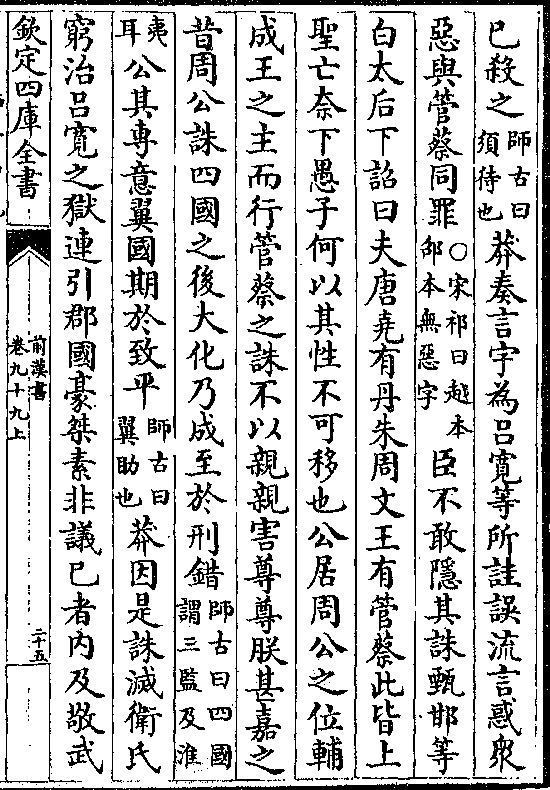 已殺之師古曰須待也莽奏言宇為吕寛等所詿誤流言惑衆
惡與管蔡同罪○宋祁曰越本邵本無惡字臣不敢隱其誅甄邯等
白太后下詔曰夫唐堯有丹朱周文王有管蔡此皆上
聖亡奈下愚子何以其性不可移也公居周公之位輔
成王之主而行管蔡之誅不以親親害尊尊朕甚嘉之
昔周公誅四國之後大化乃成至於刑錯師古曰四國謂三監及淮
夷耳公其專意翼國期於致平師古曰翼助也莽因是誅滅衛氏
窮治吕寛之獄連引郡國豪桀素非議已者内及敬武
欽定四庫全書
前漢書
卷九十九上
二十五